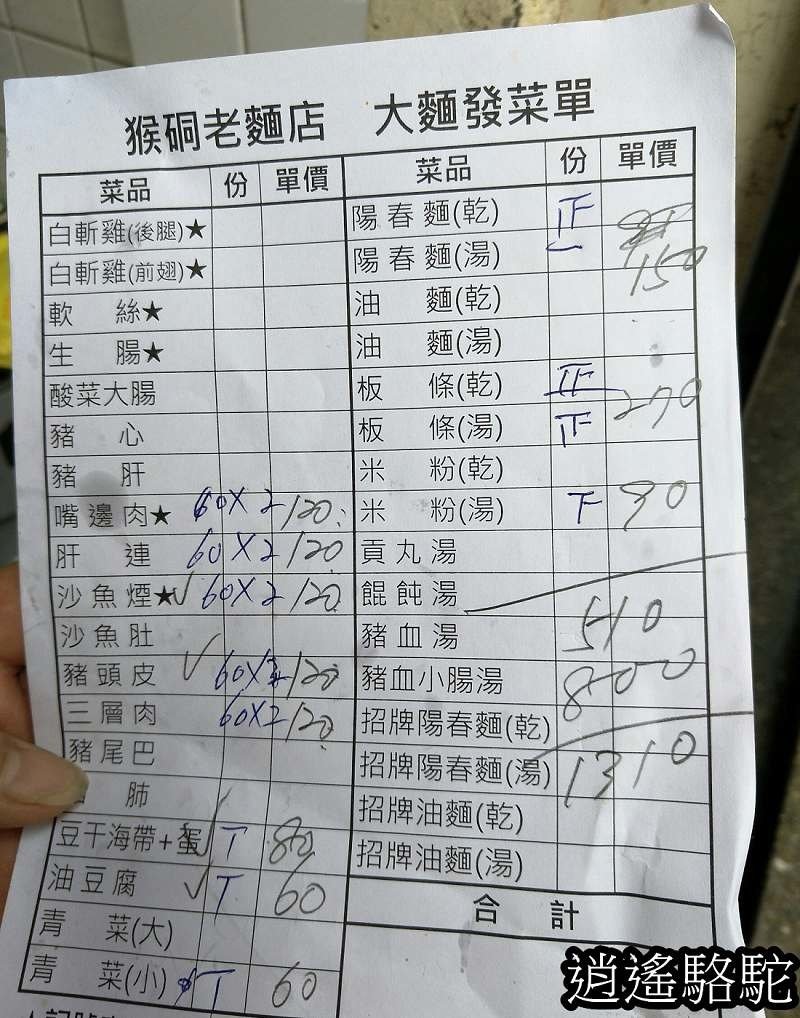 猴硐老麵店 大麵發菜單
菜品 份 單價
白斬雞(後腿)★
白斬雞(前翅)★
軟絲★
生腸★
酸菜大腸
豬心
豬肝
嘴邊肉★ 60X2 120
肝連 60X2 120
沙魚煙★ 60X2 120
沙魚肚
豬頭皮 60X2 120
三層肉 60X2 120
豬尾巴
肺
豆干海帶+蛋 T 80
油豆腐 T 60
青菜(大)
青菜(小) T 60
菜品 份 單價
陽春麵(乾) 正
陽春麵(湯) 一 150
油麵(乾)
油麵(湯)
板條(乾) 正 270
板條(湯) 正
米粉(乾)
米粉(湯) 下 90
貢丸湯
餛飩湯
豬血湯 510
豬血小腸湯 800
招牌陽春麵(乾)
招牌陽春麵(湯) 1310
招牌油麵(乾)
招牌油麵(湯)
合計
逍遙駱駝